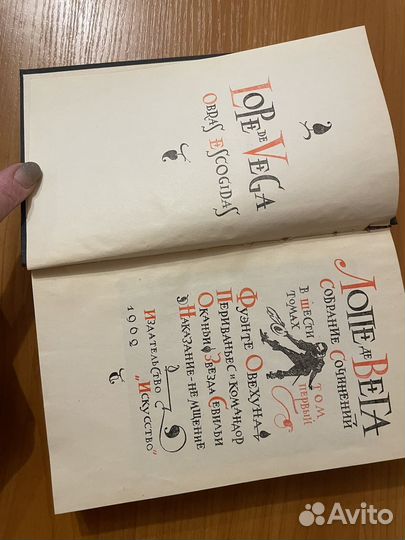 LOPE DE VEGA
OBRAS ESCOGIDAS
ЛОПЕ ДЕ ВЕГА
СОБРАНИЕ СОЧИНЕНИЙ
В ШЕСТИ
ТОМАХ
ТОМ
ПЕРВЫЙ
ФУЭНТЕ ОВЕХУНА
ПЕРИВАНЬЕС И КОМАНДОР
ОКАНЬИ ЗВЕЗДА СЕВИЛЬИ
НАКАЗАНИЕ-НЕ МЩЕНИЕ
ИЗДАТЕЛЬСТВО
„ИСКУССТВО“
1962
Avito